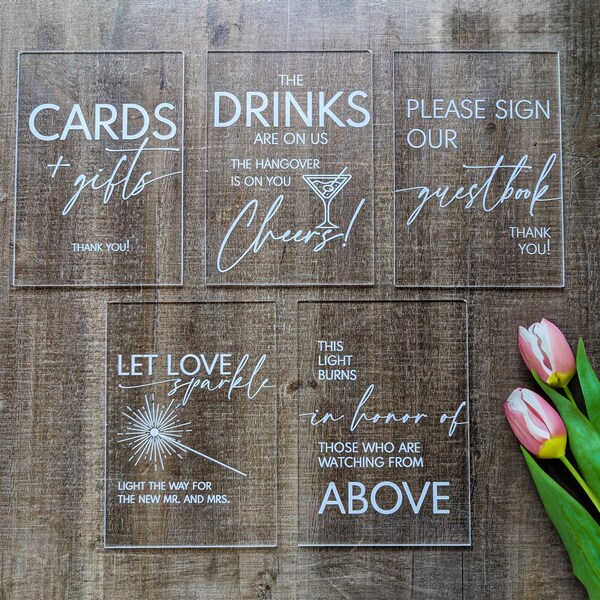 CARDS
+ gifts
THANK YOU!
THE
DRINKS
ARE ON US
THE HANGOVER
IS ON YOU
Cheers!
PLEASE SIGN
OUR
guestbook
THANK
YOU!
LET LOVE
sparkle
LIGHT THE WAY FOR
THE NEW MR. AND MRS.
THIS
LIGHT
BURNS
in honor of
THOSE WHO ARE
WATCHING FROM
ABOVE